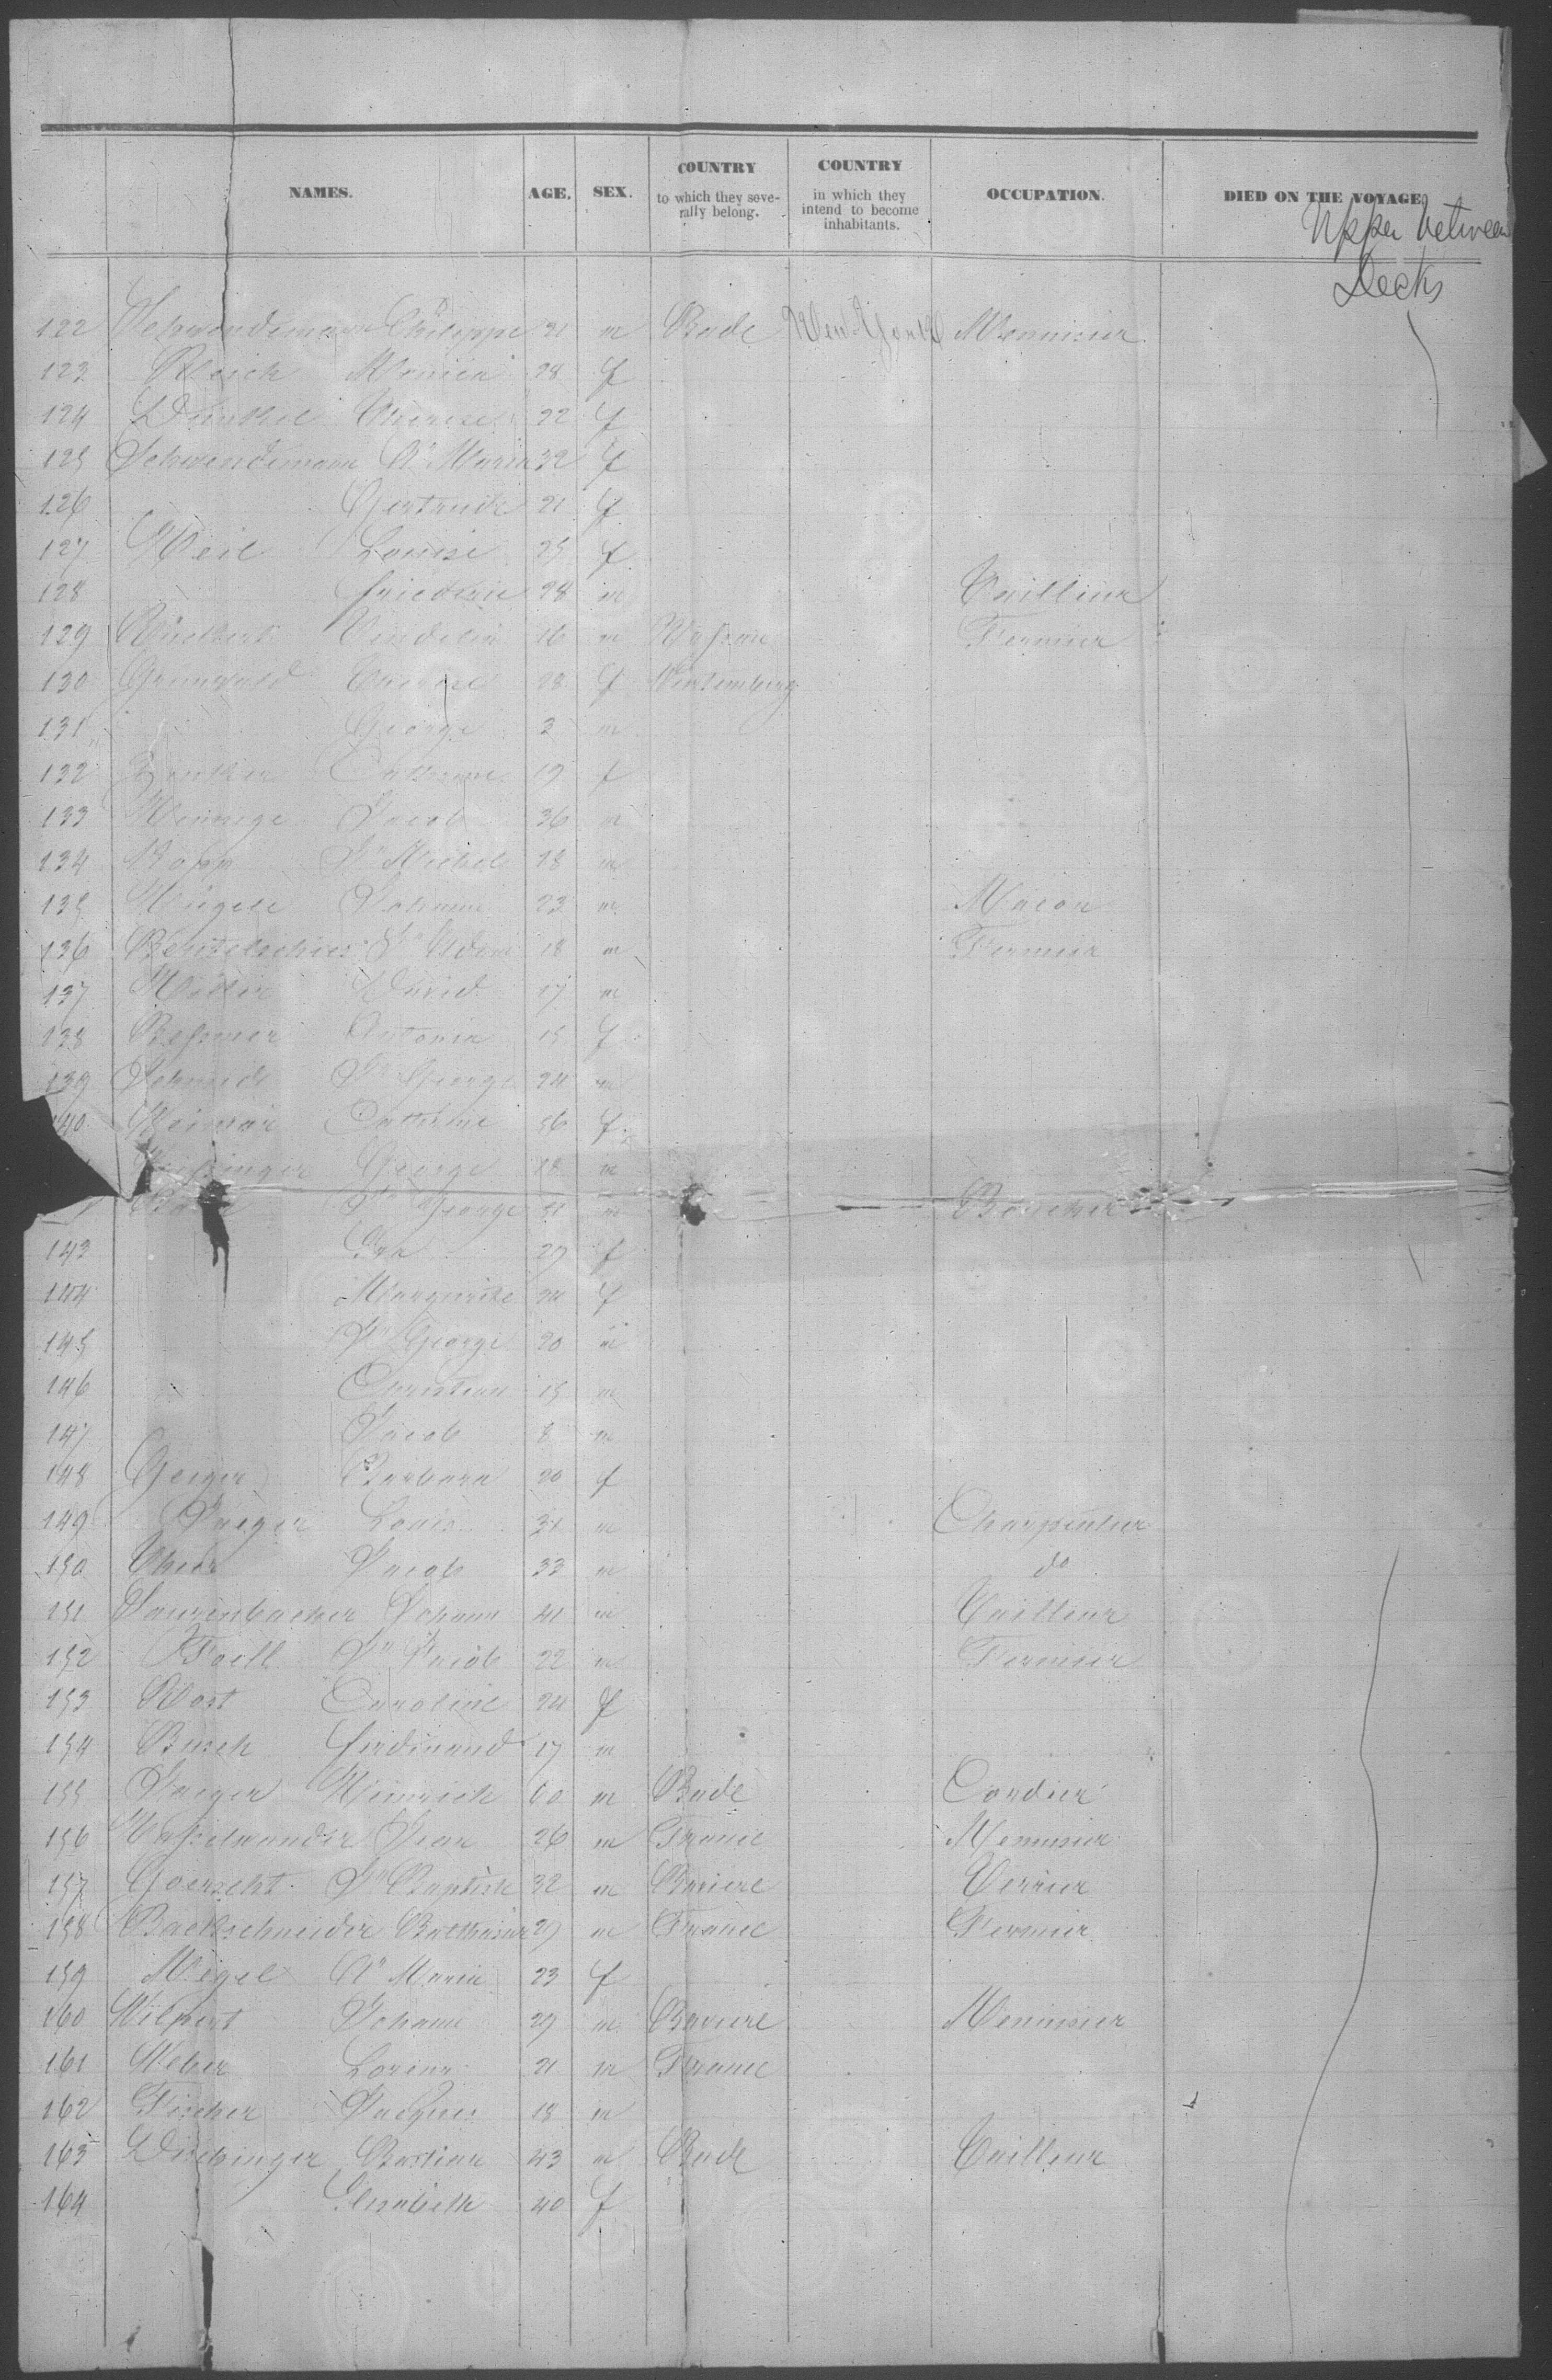 NAMES. AGE. SEX. COUNTRY to which they seve- rally belong. COUNTRY in which they intend to become inhabitants. OCCUPATION. DIED ON THE VOYAGE
Upper between
Decks
122 Schwendemann Philippe 21 m Bade New-York Menuisier
123 Reich Monica 28 f
124 Therese 22 f
125 Schwendemann An Maria 32 f
126 Gertrude 21 f
127 Weil Louise 25 f
128 friederic 28 m Tailleur
129 Rückert Vendelin 26 m Nassau Fermier
130 Grünwald Therese 28 f Wurtemberg
131 George 3 m
132 Catherine 19 f
133 Jacob 36 m
134 Jn Michel 18 m
135 Johann 23 m Macon
136 Jn Adam 18 m Fermier
137 Müller David 17 m
138 Bessmer Antonia 15 f
139 Schmidt Jn George 24 m
140 Catherine 56 f
George 18 m
Jn George 51 m Boucher
143 Eva 29 f
144 Marguerite 24 f
145 Jn George 20 m
146 Christian 15 m
147 Jacob 8 m
148 Geiger Barbara 20 f
149 Jaeger Louis 31 m Charpentier
150 Jacob 33 m do
151 Johann 41 m Tailleur
152 Foell Jn Jacob 22 m Fermier
153 Wost Caroline 24 f
154 Busch ferdinand 17 m
155 Jaeger Heinrich 60 m Bade Cordier
156 Wasselmander Jean 26 m France Menuisier
157 Jn Baptiste 32 m Baviere Verrier
158 Backschneider Balthasar 29 m France Fermier
159 Megel An Maria 23 f
160 Hilpert Johann 29 m Baviere Menuisier
161 Weber Lorenz 21 m France
162 Fischer Jacques 18 m
163 Dischinger Bastian 43 m Bade Tailleur
164 Elisabeth 40 f